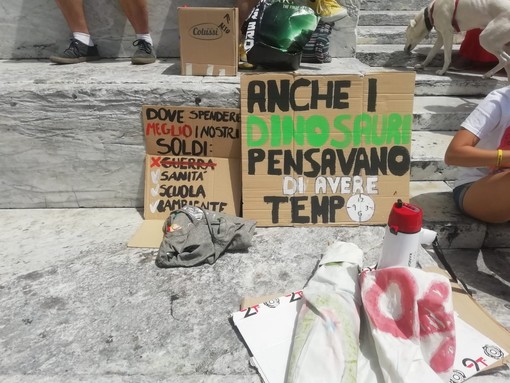 Colussi
DOVE SPENDERE
MEGLIO I NOSTRI
SOLDI:
GUERRA
SANITÀ
SCUOLA
AMBIENTE
ANCHE I
DINOSAURI
PENSAVANO
DI AVERE
TEMPO